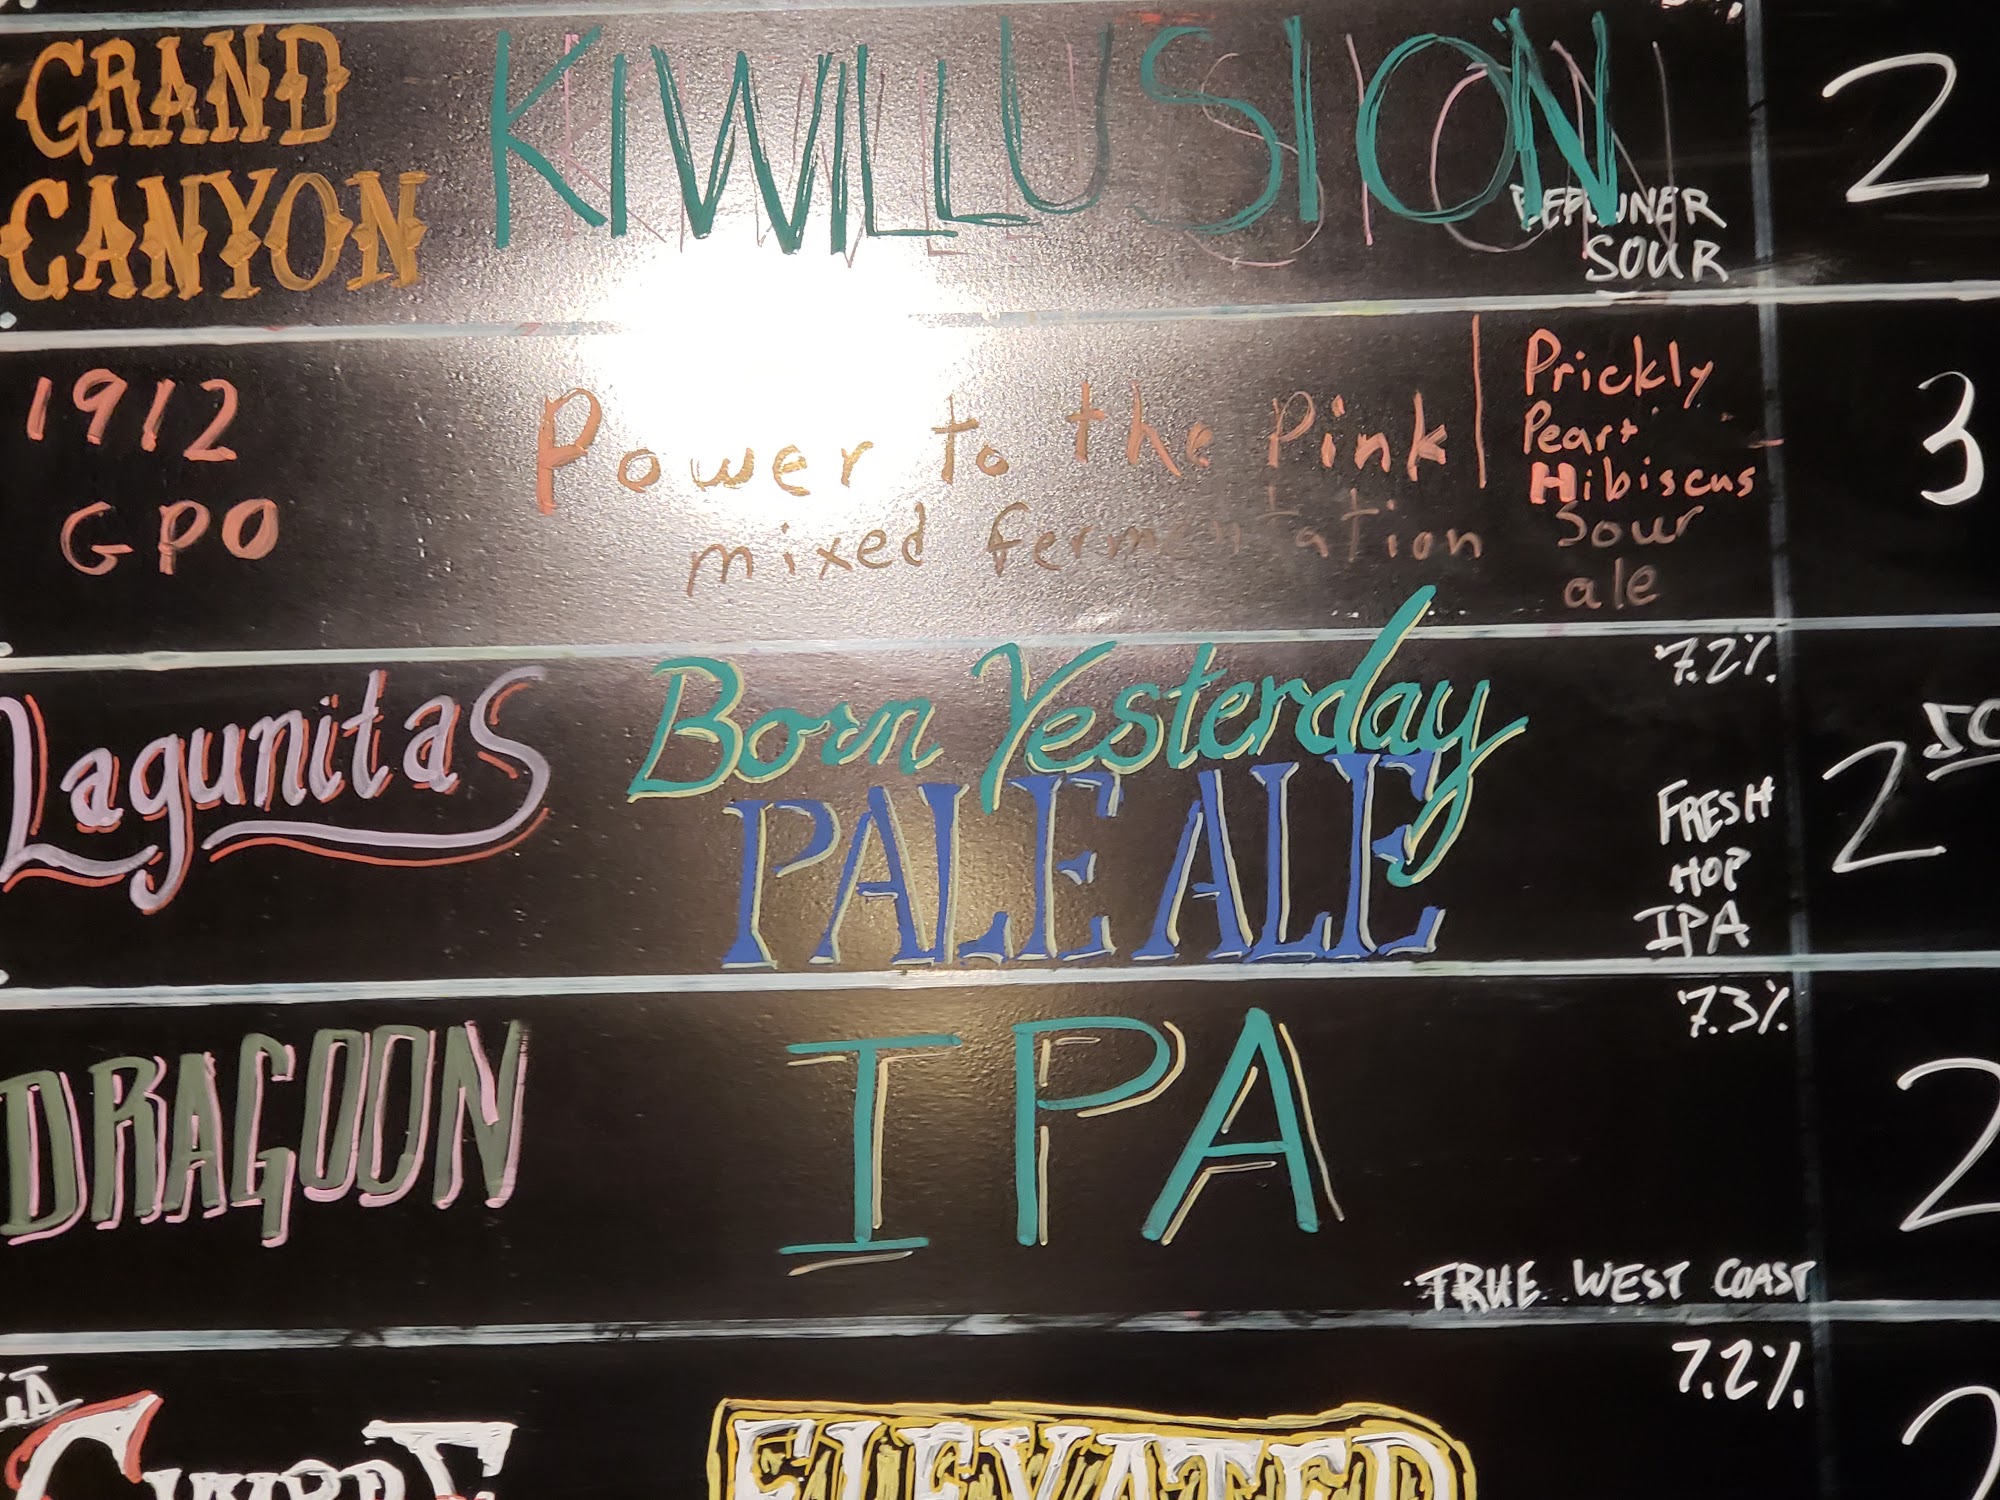 GRAND
CANYON
KIWILLUSION
SOUR
2
1912
GPO
Power to the Pink
mixed fermentation
Prickly
Pear +
Hibiscus
Sour
ale
3
Lagunitas
Born Yesterday
PALE ALE
7.2%
FRESH
HOP
IPA
2 50
DRAGOON
IPA
7.3%
TRUE WEST COAST
2
ELEVATED
7.2%
2